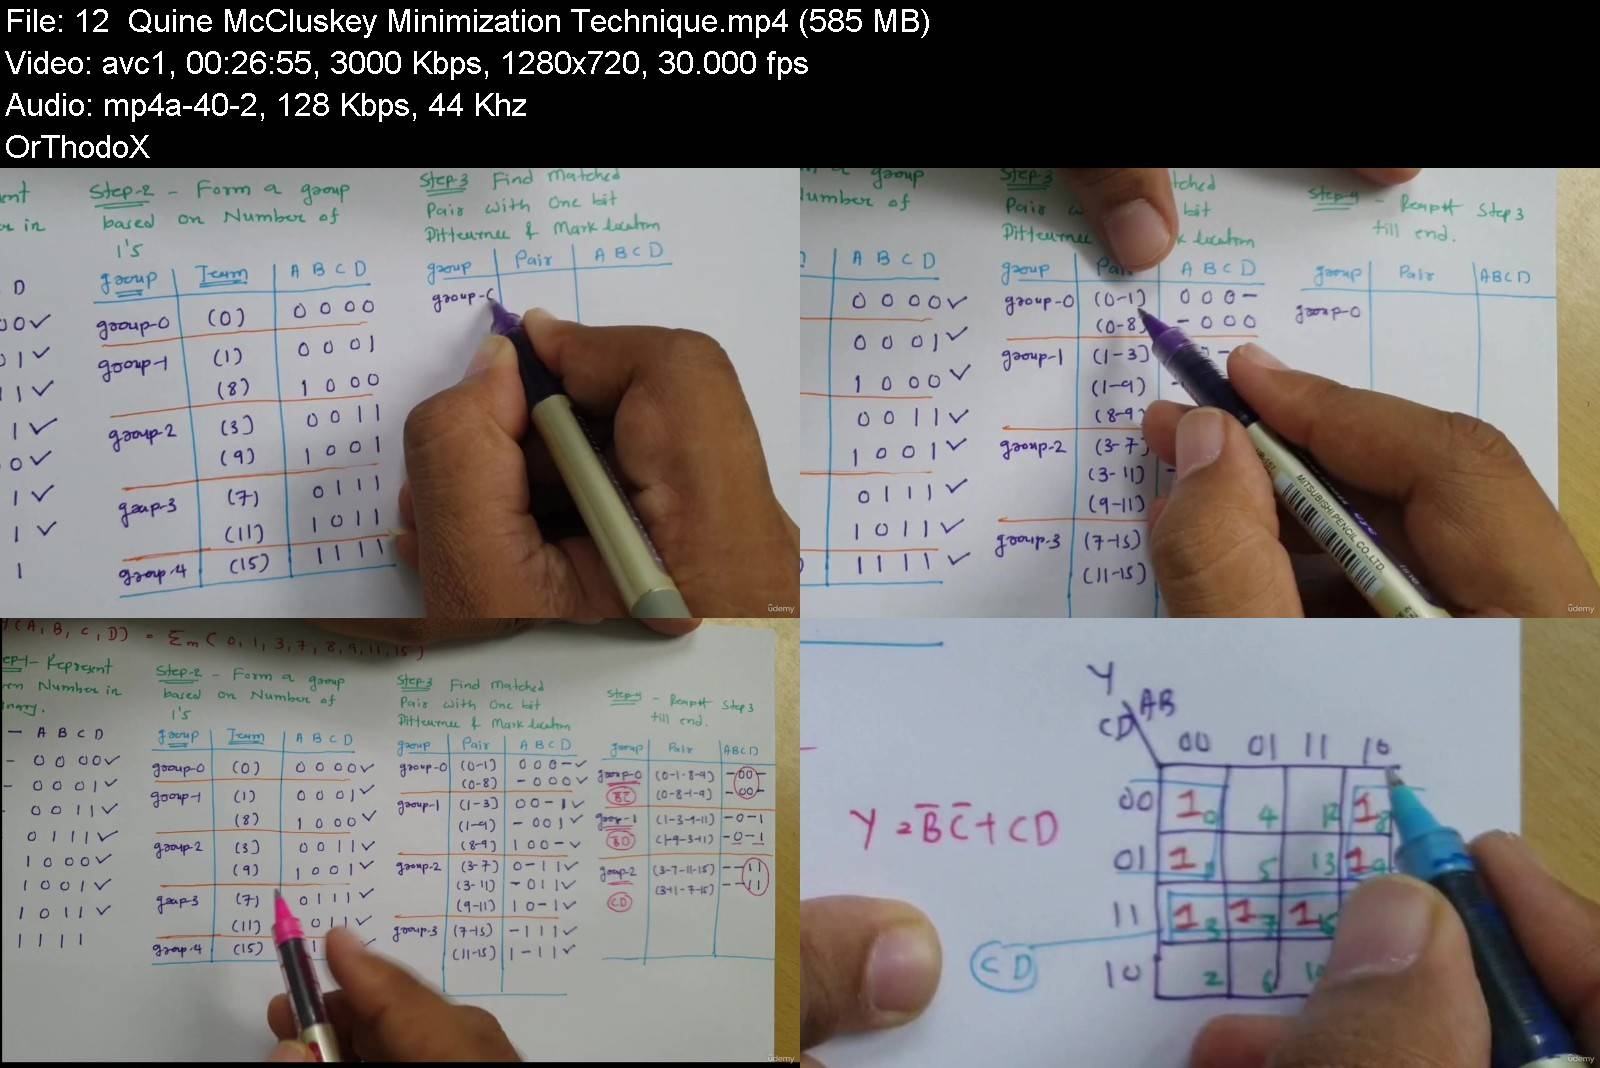 File: 12 Quine McCluskey Minimization Technique.mp4 (585 MB)
Video: avc1, 00:26:55, 3000 Kbps, 1280x720, 30.000 fps
Audio: mp4a-40-2, 128 Kbps, 44 Khz
OrThodoX
Step-2 - Form a group
based on Number of
1's
group Term A B C D
group-0 (0) 0 0 0 0
group-1 (1) 0 0 0 1
(8) 1 0 0 0
group-2 (3) 0 0 1 1
(9) 1 0 0 1
(7) 0 1 1 1
(11) 1 0 1 1
group-4 (15) 1 1 1 1
Step-3 Find Matched
Pair with One bit
& Mark location
group Pair A B C D
udemy
group
umber of
A B C D
0 0 0 0 ✓
0 0 0 1 ✓
1 0 0 0 ✓
0 0 1 1 ✓
1 0 0 1 ✓
0 1 1 1 ✓
1 0 1 1 ✓
1 1 1 1 ✓
Step-3
bit
group A B C D
group-0 (0-1) 0 0 0 -
(0-8) - 0 0 0
group-1 (1-3)
(1-9)
(8-9
group-2 (3-7)
(3-11)
(9-11)
group-3 (7-15)
(11-15)
Step 3
till end.
group Pair ABCD
group-0
MITSUBISHI PENCIL CO.,LTD.
udemy
(A, B, C, D) = Σm ( 0, 1, 3, 7, 8, 9, 11, 15 )
Number in
- A B C D
- 0 0 0 0 ✓
- 0 0 0 1 ✓
0 0 1 1 ✓
0 1 1 1 ✓
1 0 0 0 ✓
1 0 0 1 ✓
1 0 1 1 ✓
1 1 1 1
Step-2 - Form a group
based on Number of
1's
group Term A B C D
group-0 (0) 0 0 0 0 ✓
group-1 (1) 0 0 0 1 ✓
(8) 1 0 0 0 ✓
group-2 (3) 0 0 1 1 ✓
(9) 1 0 0 1 ✓
(7) 0 1 1 1 ✓
(11) 0 1 1 ✓
group-4 (15) 1
Step-3 Find Matched
Pair with One bit
& Mark location
group Pair A B C D
group-0 (0-1) 0 0 0 - ✓
(0-8) - 0 0 0 ✓
group-1 (1-3) 0 0 - 1 ✓
(1-9) - 0 0 1 ✓
(8-9) 1 0 0 - ✓
group-2 (3-7) 0 - 1 1 ✓
(3-11) - 0 1 1 ✓
(9-11) 1 0 - 1 ✓
group-3 (7-15) - 1 1 1 ✓
(11-15) 1 - 1 1 ✓
Step 3
till end.
group Pair ABCD
group-0 (0-1-8-9) -00-
B̅C̅ (0-8-1-9) -00-
group-1 (1-3-9-11) -0-1
(1-9-3-11) -0-1
group-2 (3-7-11-15) --11
(3-11-7-15) --11
CD
udemy
Y
AB
CD
00 01 11 10
00 1 0 4 12 1 8
01 1 5 13 1 9
11 1 3 1 7 1 15
10 2 6
Y = B̅C̅ + CD
CD
udemy